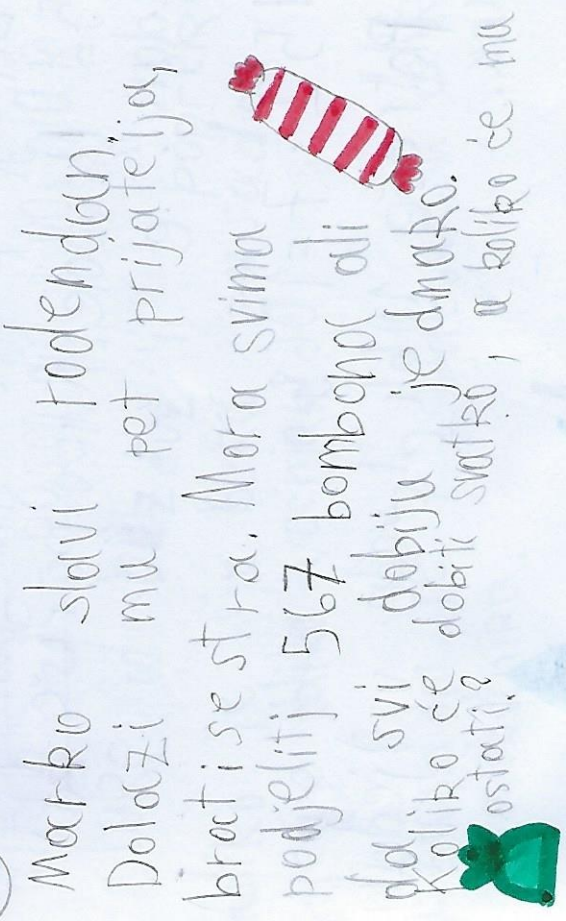 Marko slavi rođendan.
Dolazi mu pet prijatelja,
brat i sestra. Mora svima
podjeliti 567 bombona ali
da svi dobiju jednako.
Koliko će dobiti svatko, a koliko će mu
ostati?